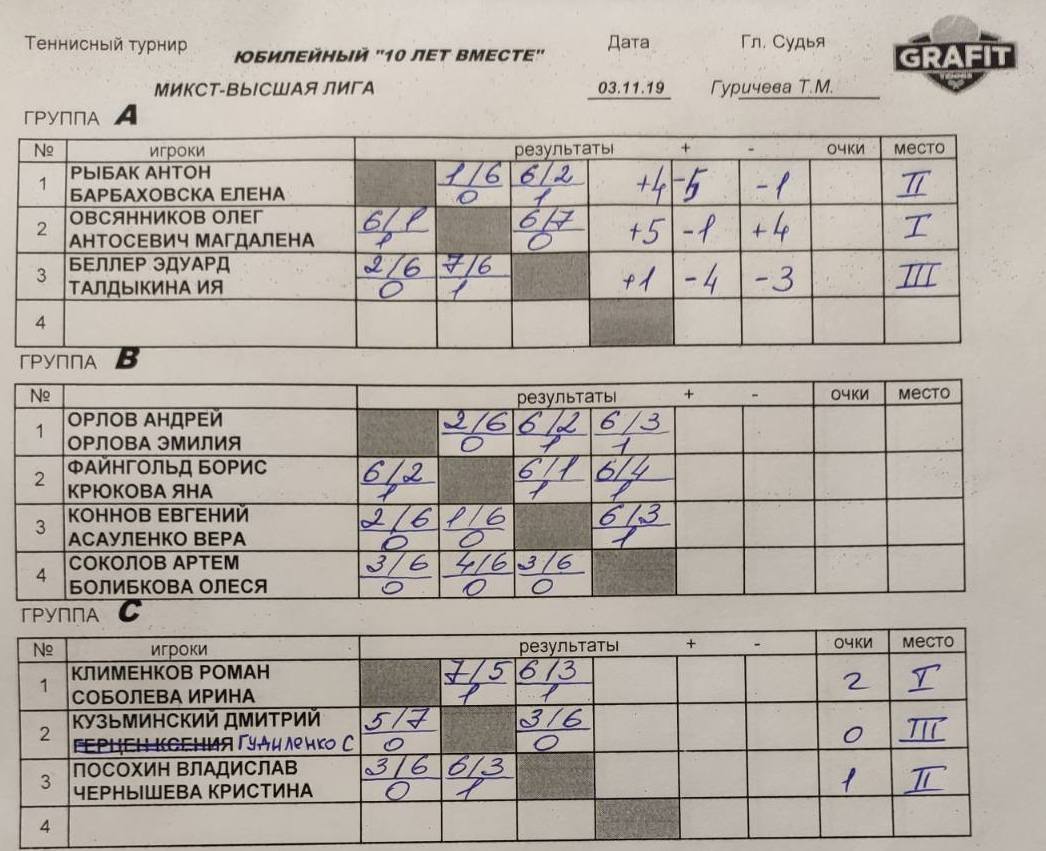 Теннисный турнир ЮБИЛЕЙНЫЙ "10 ЛЕТ ВМЕСТЕ" Дата Гл. Судья
GRAFIT
TENNIS
МИКСТ-ВЫСШАЯ ЛИГА 03.11.19 Гуричева Т.М.
ГРУППА А
№ игроки результаты + - очки место
1 РЫБАК АНТОН 1/6 6/2 +4 -5 -1 II
БАРБАХОВСКА ЕЛЕНА 0 1
2 ОВСЯННИКОВ ОЛЕГ 6/1 6/7 +5 -1 +4 I
АНТОСЕВИЧ МАГДАЛЕНА 1 0
3 БЕЛЛЕР ЭДУАРД 2/6 7/6 +1 -4 -3 III
ТАЛДЫКИНА ИЯ 0 1
4
ГРУППА В
№ результаты + - очки место
1 ОРЛОВ АНДРЕЙ 2/6 6/2 6/3
ОРЛОВА ЭМИЛИЯ 0 1 1
2 ФАЙНГОЛЬД БОРИС 6/2 6/1 6/4
КРЮКОВА ЯНА 1 1 1
3 КОННОВ ЕВГЕНИЙ 2/6 1/6 6/3
АСАУЛЕНКО ВЕРА 0 0 1
4 СОКОЛОВ АРТЕМ 3/6 4/6 3/6
БОЛИБКОВА ОЛЕСЯ 0 0 0
ГРУППА С
№ игроки результаты + - очки место
1 КЛИМЕНКОВ РОМАН 7/5 6/3 2 I
СОБОЛЕВА ИРИНА 1 1
2 КУЗЬМИНСКИЙ ДМИТРИЙ 5/7 3/6 0 III
ГЕРЦЕН КСЕНИЯ Гудиленко С 0 0
3 ПОСОХИН ВЛАДИСЛАВ 3/6 6/3 1 II
ЧЕРНЫШЕВА КРИСТИНА 0 1
4